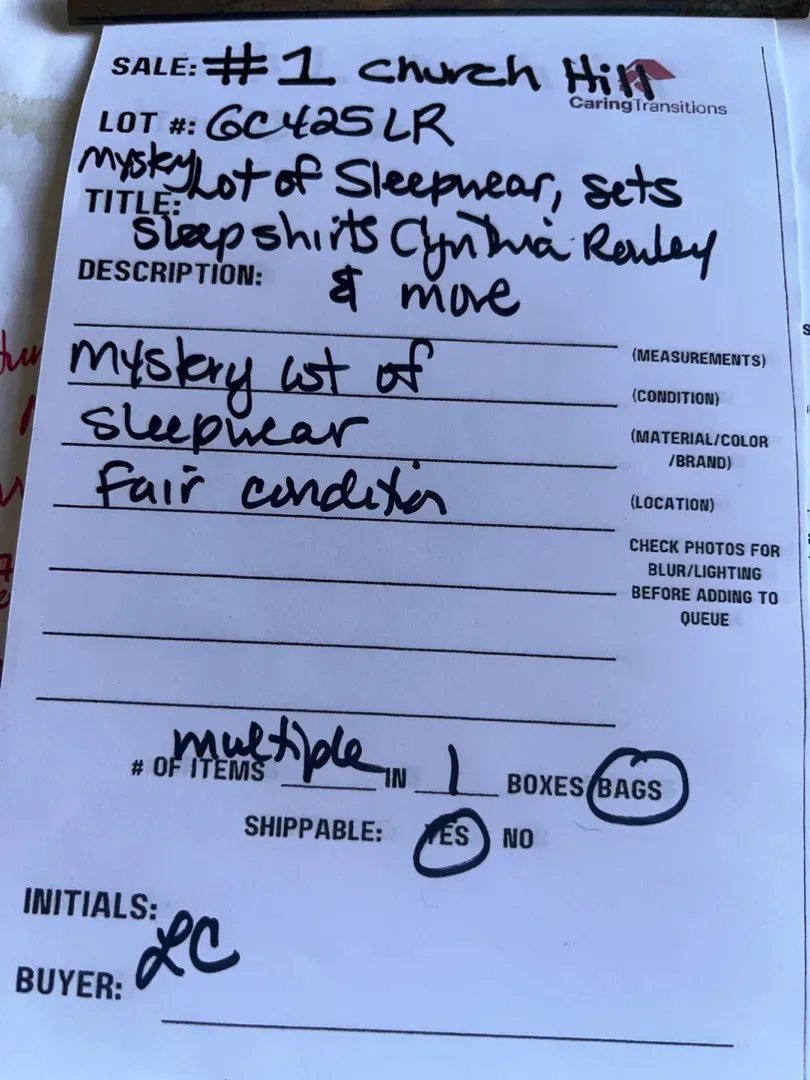 SALE: #1 Church Hill
CaringTransitions
LOT #: GC425LR
Mystery Lot of Sleepwear, sets
TITLE:
Sleep shirts Cynthia Rowley
DESCRIPTION: & more
(MEASUREMENTS)
Mystery lot of
(CONDITION)
Sleepwear
(MATERIAL/COLOR
/BRAND)
Fair condition
(LOCATION)
CHECK PHOTOS FOR
BLUR/LIGHTING
BEFORE ADDING TO
QUEUE
# OF ITEMS multiple IN 1 BOXES/BAGS
SHIPPABLE: YES NO
INITIALS: LC
BUYER: